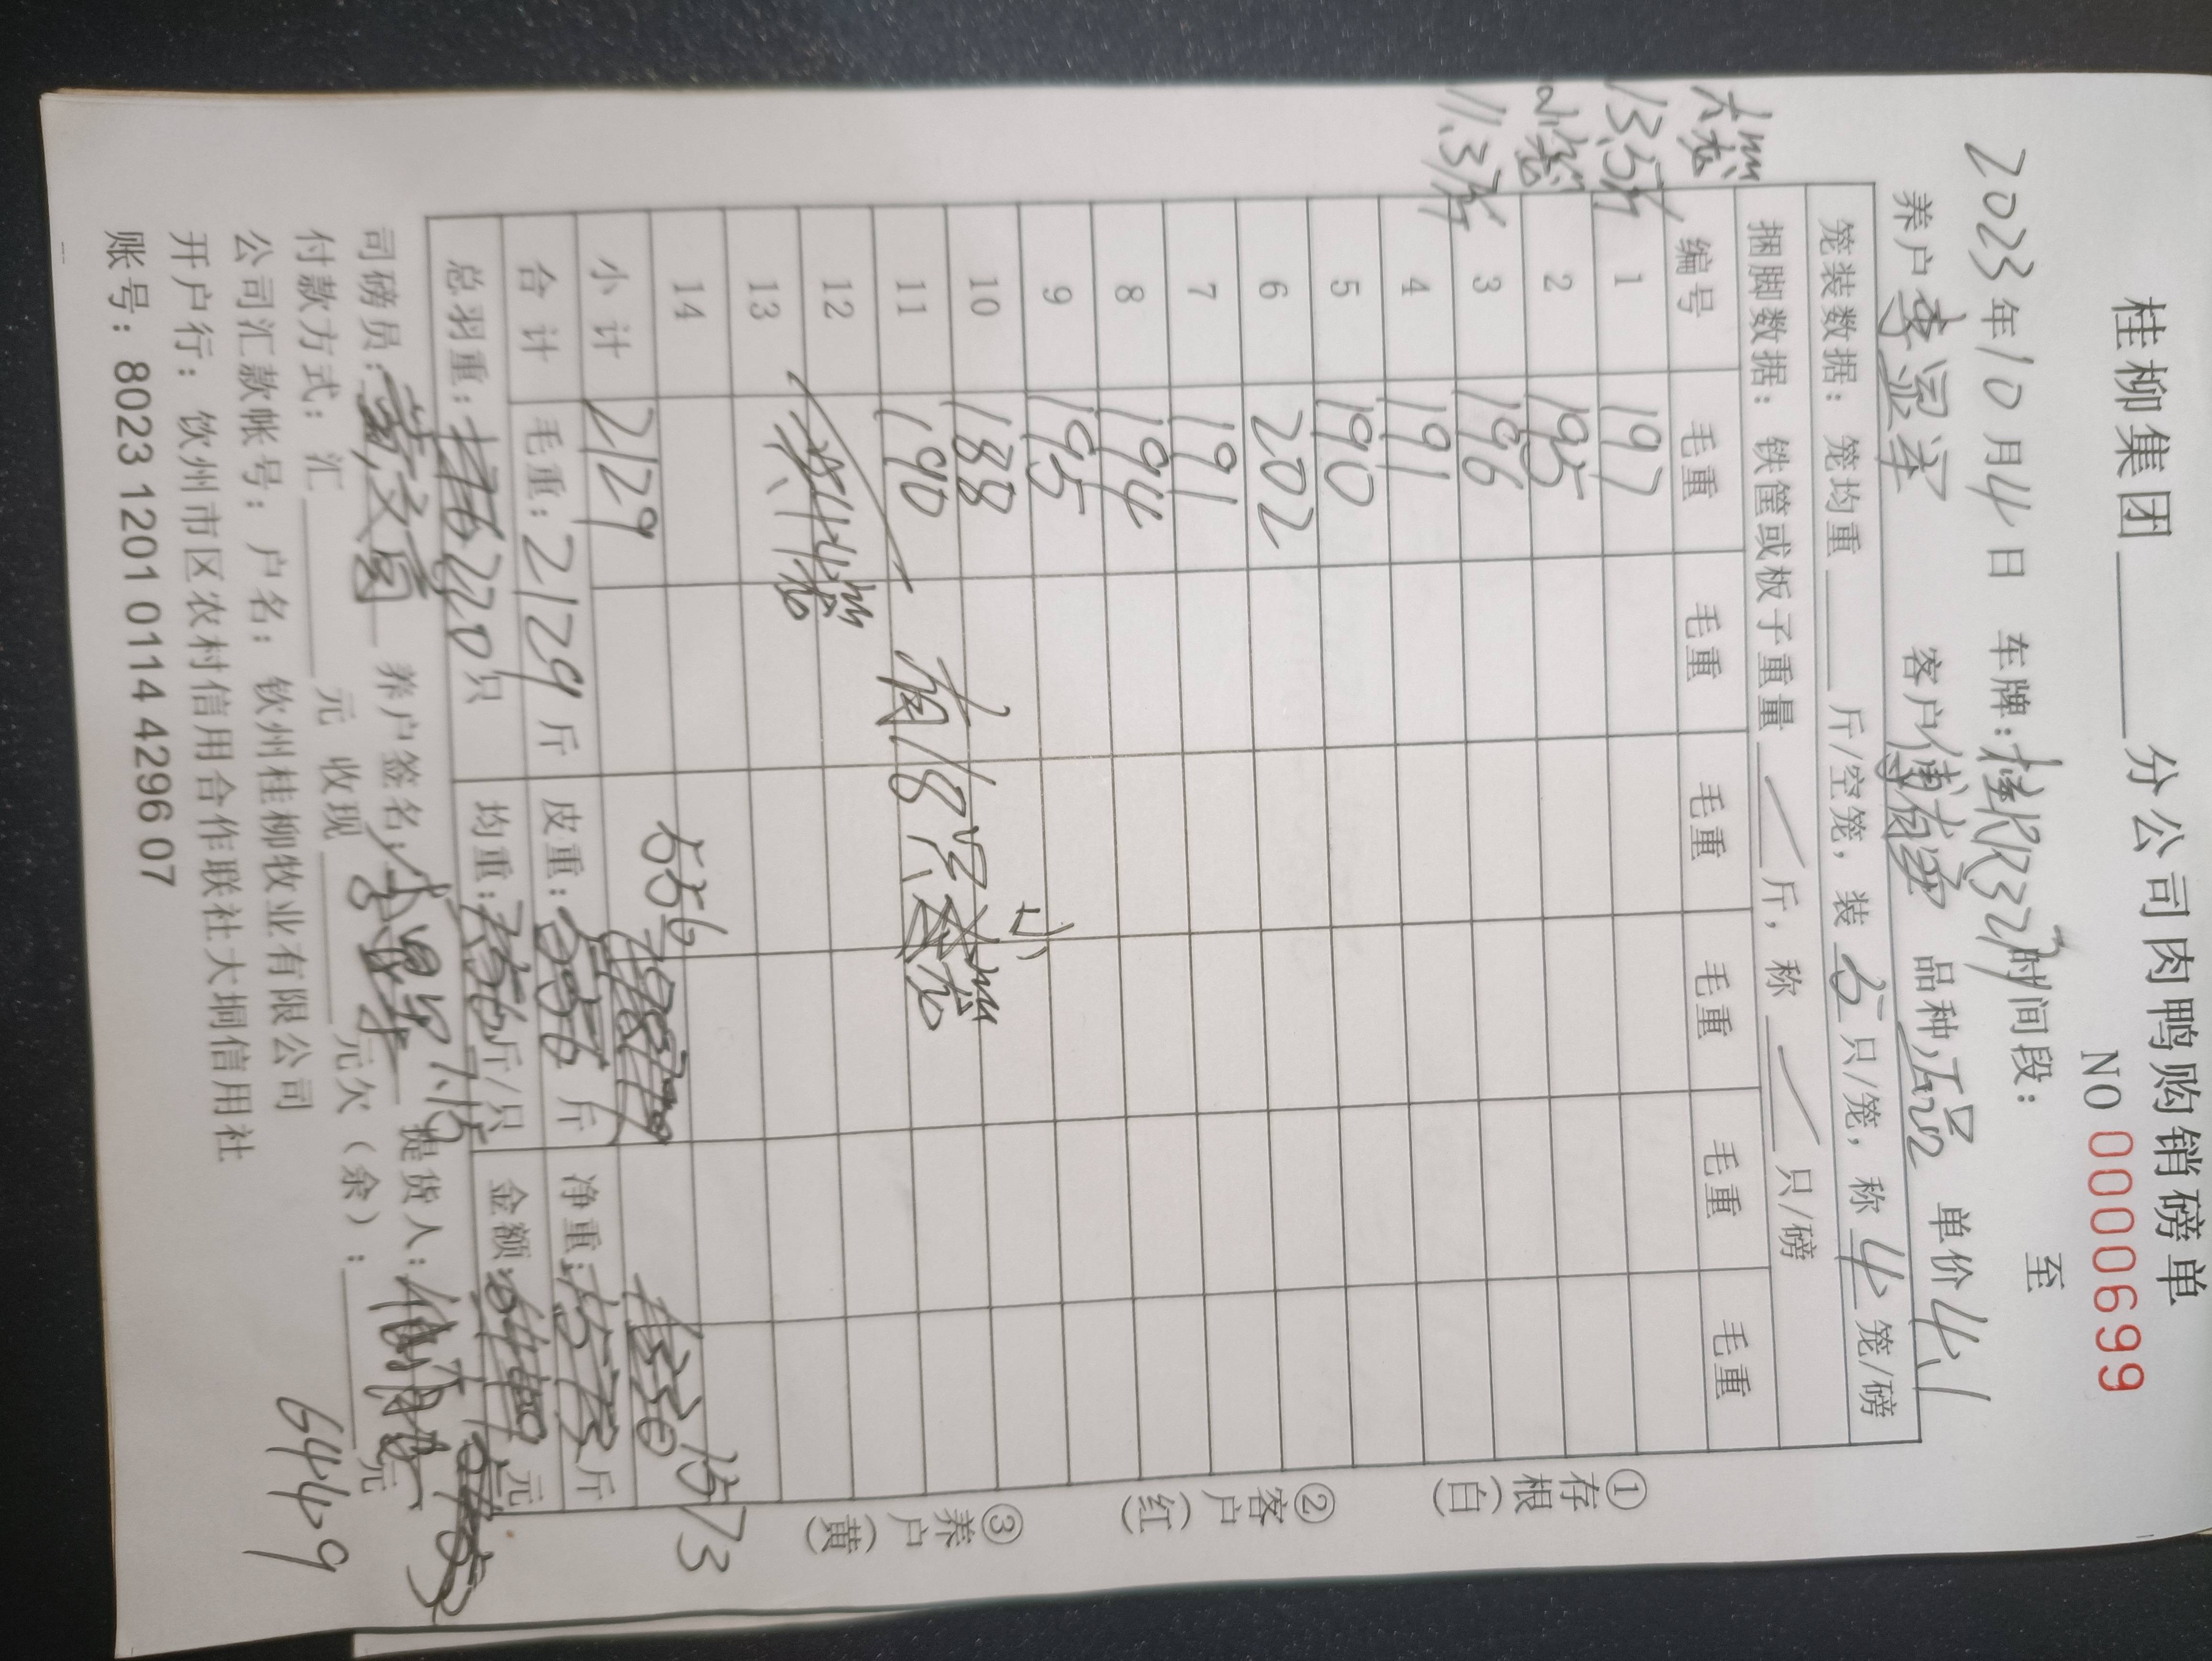 桂柳集团______分公司肉鸭购销磅单
NO 0000699
2023年10月4日 车牌: 时间段: 至
养户 客户 品种 单价4.1
笼装数据: 笼均重____斤/空笼, 装 5 只/笼, 称 4 笼/磅
捆脚数据: 铁筐或板子重量 / 斤, 称 / 只/磅
大笼
13.5斤
小笼
11.3斤
编号 毛重 毛重 毛重 毛重 毛重 毛重
1 197
2 195
3 196
4 191
5 190
6 202
7 191
8 194
9 195
10 188
11 190
12
13
14
共44笼
有18只
小
笼
556
1573
小计 2129
合计 毛重: 2129 斤 皮重: 556 斤 净重: 斤
总羽重: 220 只 均重: 斤/只 金额: 元
7.15
6449
司磅员: 养户签名: 提货人:
付款方式: 汇______元 收现______元欠(余):______元
公司汇款帐号: 户名: 钦州桂柳牧业有限公司
开户行: 钦州市区农村信用合作联社大垌信用社
账号: 8023 1201 0114 4296 07
①存根(白)
②客户(红)
③养户(黄)